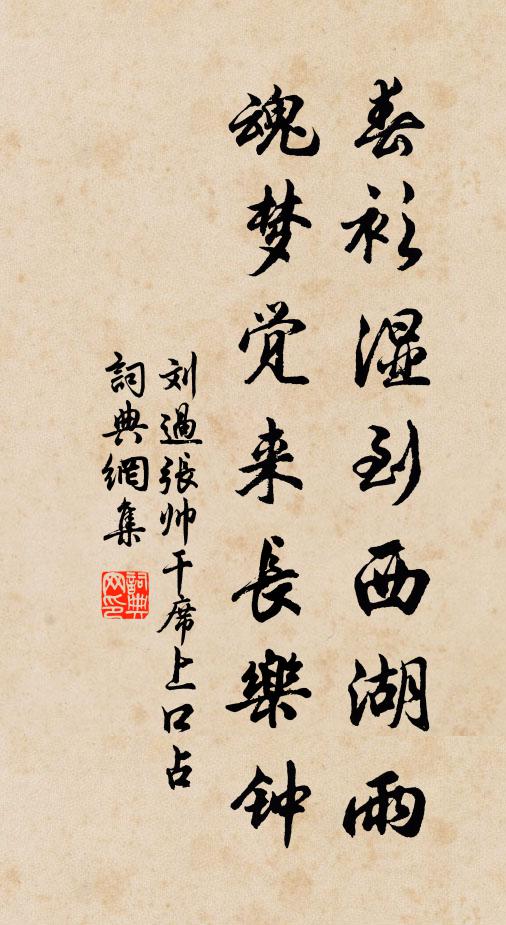 春衫湿到西湖雨
魂梦觉来長樂钟
刘過張帅干席上口占
詞典網集
詞典网印